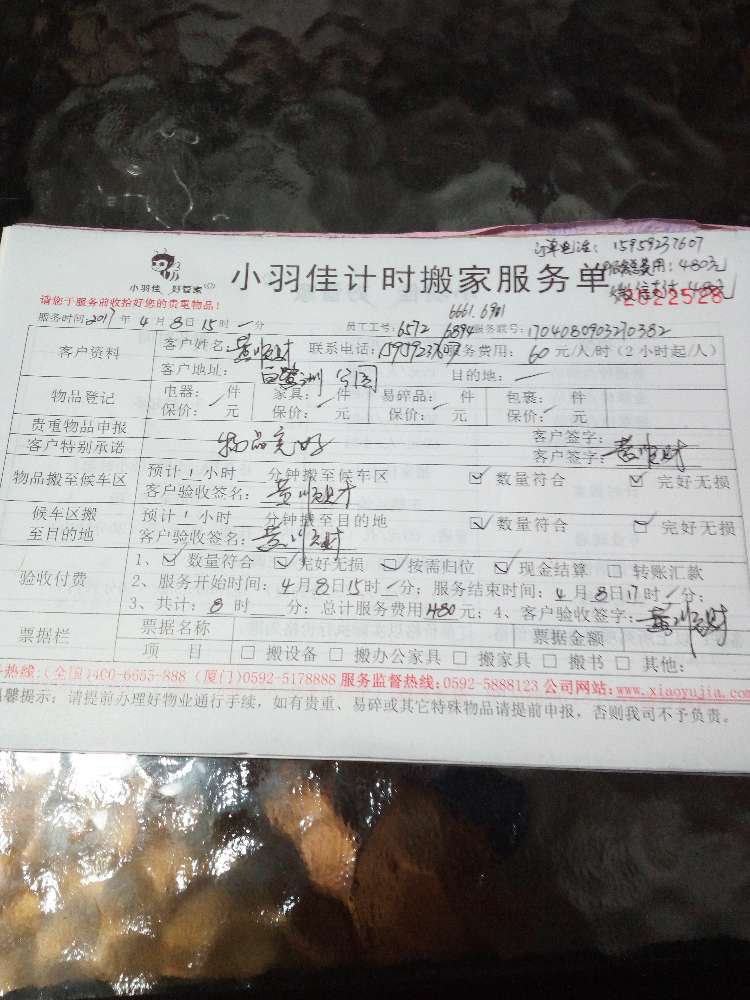 订单电话：15959237607
服务总费用：480元
小羽佳 好管家
小羽佳计时搬家服务单
2022528
请您于服务前收拾好您的贵重物品！
服务时间2017年4月8日15时一分
6661.6911
员工工号：6572 6894 服务联号：1704080903210382
客户资料
客户姓名：黄顺财 联系电话：15959237607 服务费用：60元/人/时（2小时起/人）
客户地址：白鹭洲公园 目的地：一
物品登记
电器： 件 家具： 件 易碎品： 件 包裹： 件
保价： 元 保价： 元 保价： 元 保价： 元
贵重物品申报
客户签字：
客户特别承诺 物品完好 客户签字：黄顺财
物品搬至候车区
预计1小时 分钟搬至候车区 ☑数量符合 ☑完好无损
客户验收签名：黄顺财
候车区搬至目的地
预计1小时 分钟搬至目的地 ☑数量符合 ☑完好无损
客户验收签名：黄顺财
验收付费
1、☑数量符合 ☑完好无损 ☑按需归位 ☑现金结算 □转账汇款
2、服务开始时间：4月8日15时一分；服务结束时间：4月8日17时一分；
3、共计：8时 分；总计服务费用480元；4、客户验收签字：黄顺财
票据栏
票据名称 票据金额
项 目 □搬设备 □搬办公家具 □搬家具 □搬书 □其他：
热线：（全国）400-6655-888（厦门）0592-5178888 服务监督热线：0592-5888123 公司网站：www.xiaoyujia.com
馨提示：请提前办理好物业通行手续，如有贵重、易碎或其它特殊物品请提前申报，否则我司不予负责。